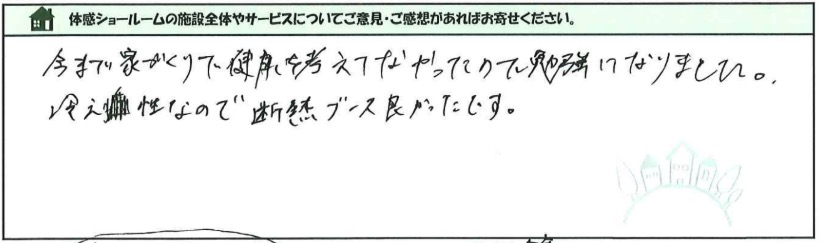 体感ショールームの施設全体やサービスについてご意見・ご感想があればお寄せください。
今まで家づくりで健康を考えてなかったので勉強になりました。
冷え性なので断熱ブース良かったです。